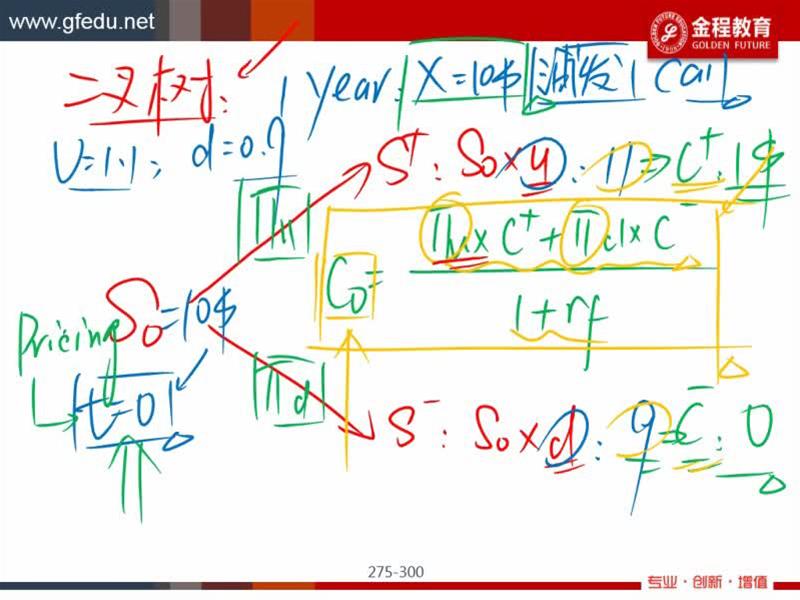 www.gfedu.net
金程教育
GOLDEN FUTURE
二叉树:
1 Year: X=10$ 1 Call
U=1.1; d=0.9
S⁺: S₀×u: 11 ⇒ C⁺: 1$
πu
C₀= πu×C⁺+πd×C⁻
1+rf
S₀=10$
Pricing
t=0
πd
S⁻: S₀×d: 9 ⇒ C⁻: 0
275-300
专业·创新·增值